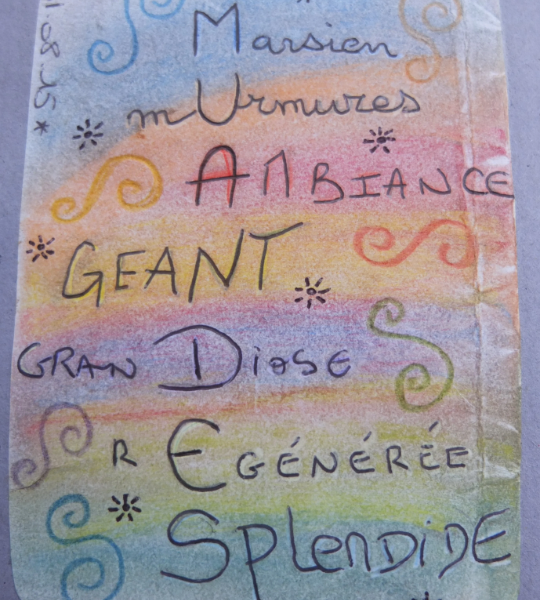 Marsien
mUrmures
AMBIANCE
GEANT
GRANDiose
REGÉNÉRÉE
SpLenDiDE